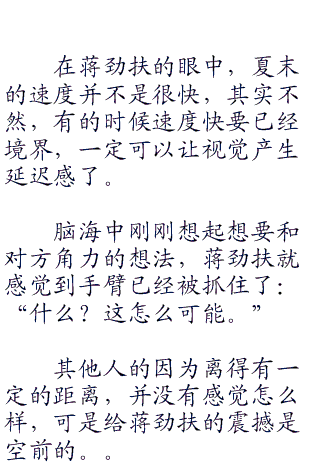 在蒋劲扶的眼中，夏末
的速度并不是很快，其实不
然，有的时候速度快要已经
境界，一定可以让视觉产生
延迟感了。
脑海中刚刚想起想要和
对方角力的想法，蒋劲扶就
感觉到手臂已经被抓住了：
“什么？这怎么可能。”
其他人的因为离得有一
定的距离，并没有感觉怎么
样，可是给蒋劲扶的震撼是
空前的。。